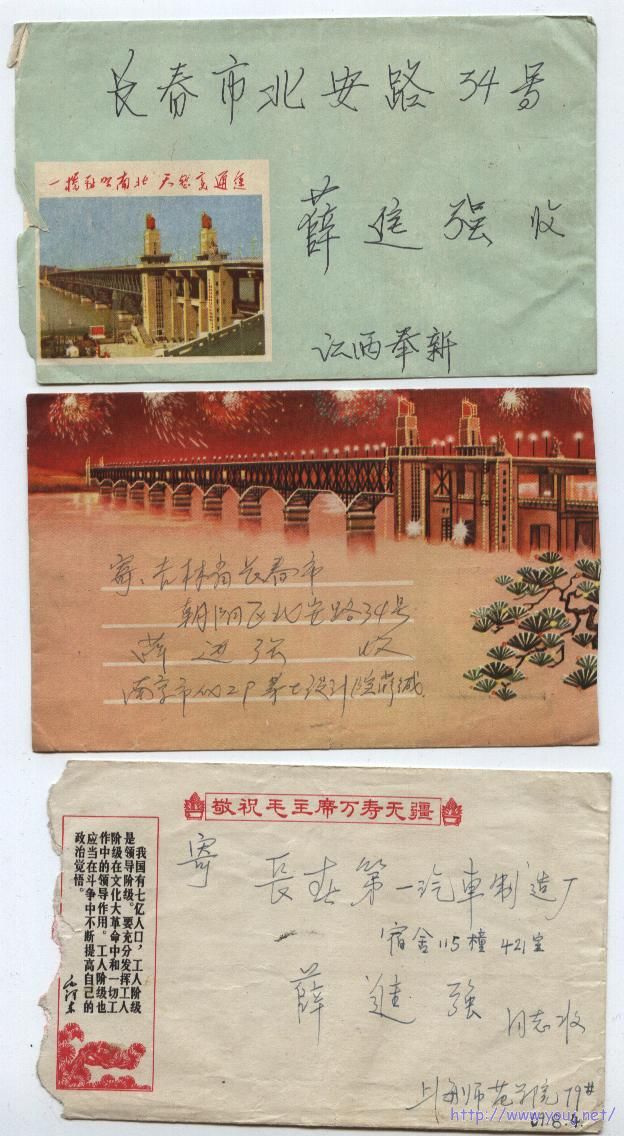 长春市北安路34号
一桥飞架南北 天堑变通途
薛进强 收
江西奉新
寄：吉林省长春市
朝阳区北安路34号
薛进强 收
南京市
敬祝毛主席万寿无疆
我国有七亿人口，工人阶级
是领导阶级。要充分发挥工人
阶级在文化大革命中和一切工
作中的领导作用。工人阶级也
应当在斗争中不断提高自己的
政治觉悟。
毛泽东
寄 長春第一汽車制造厂
宿舍115幢421室
薛進強 同志收
上海师范学院79#
69.8.4.
http://www.youj.net/